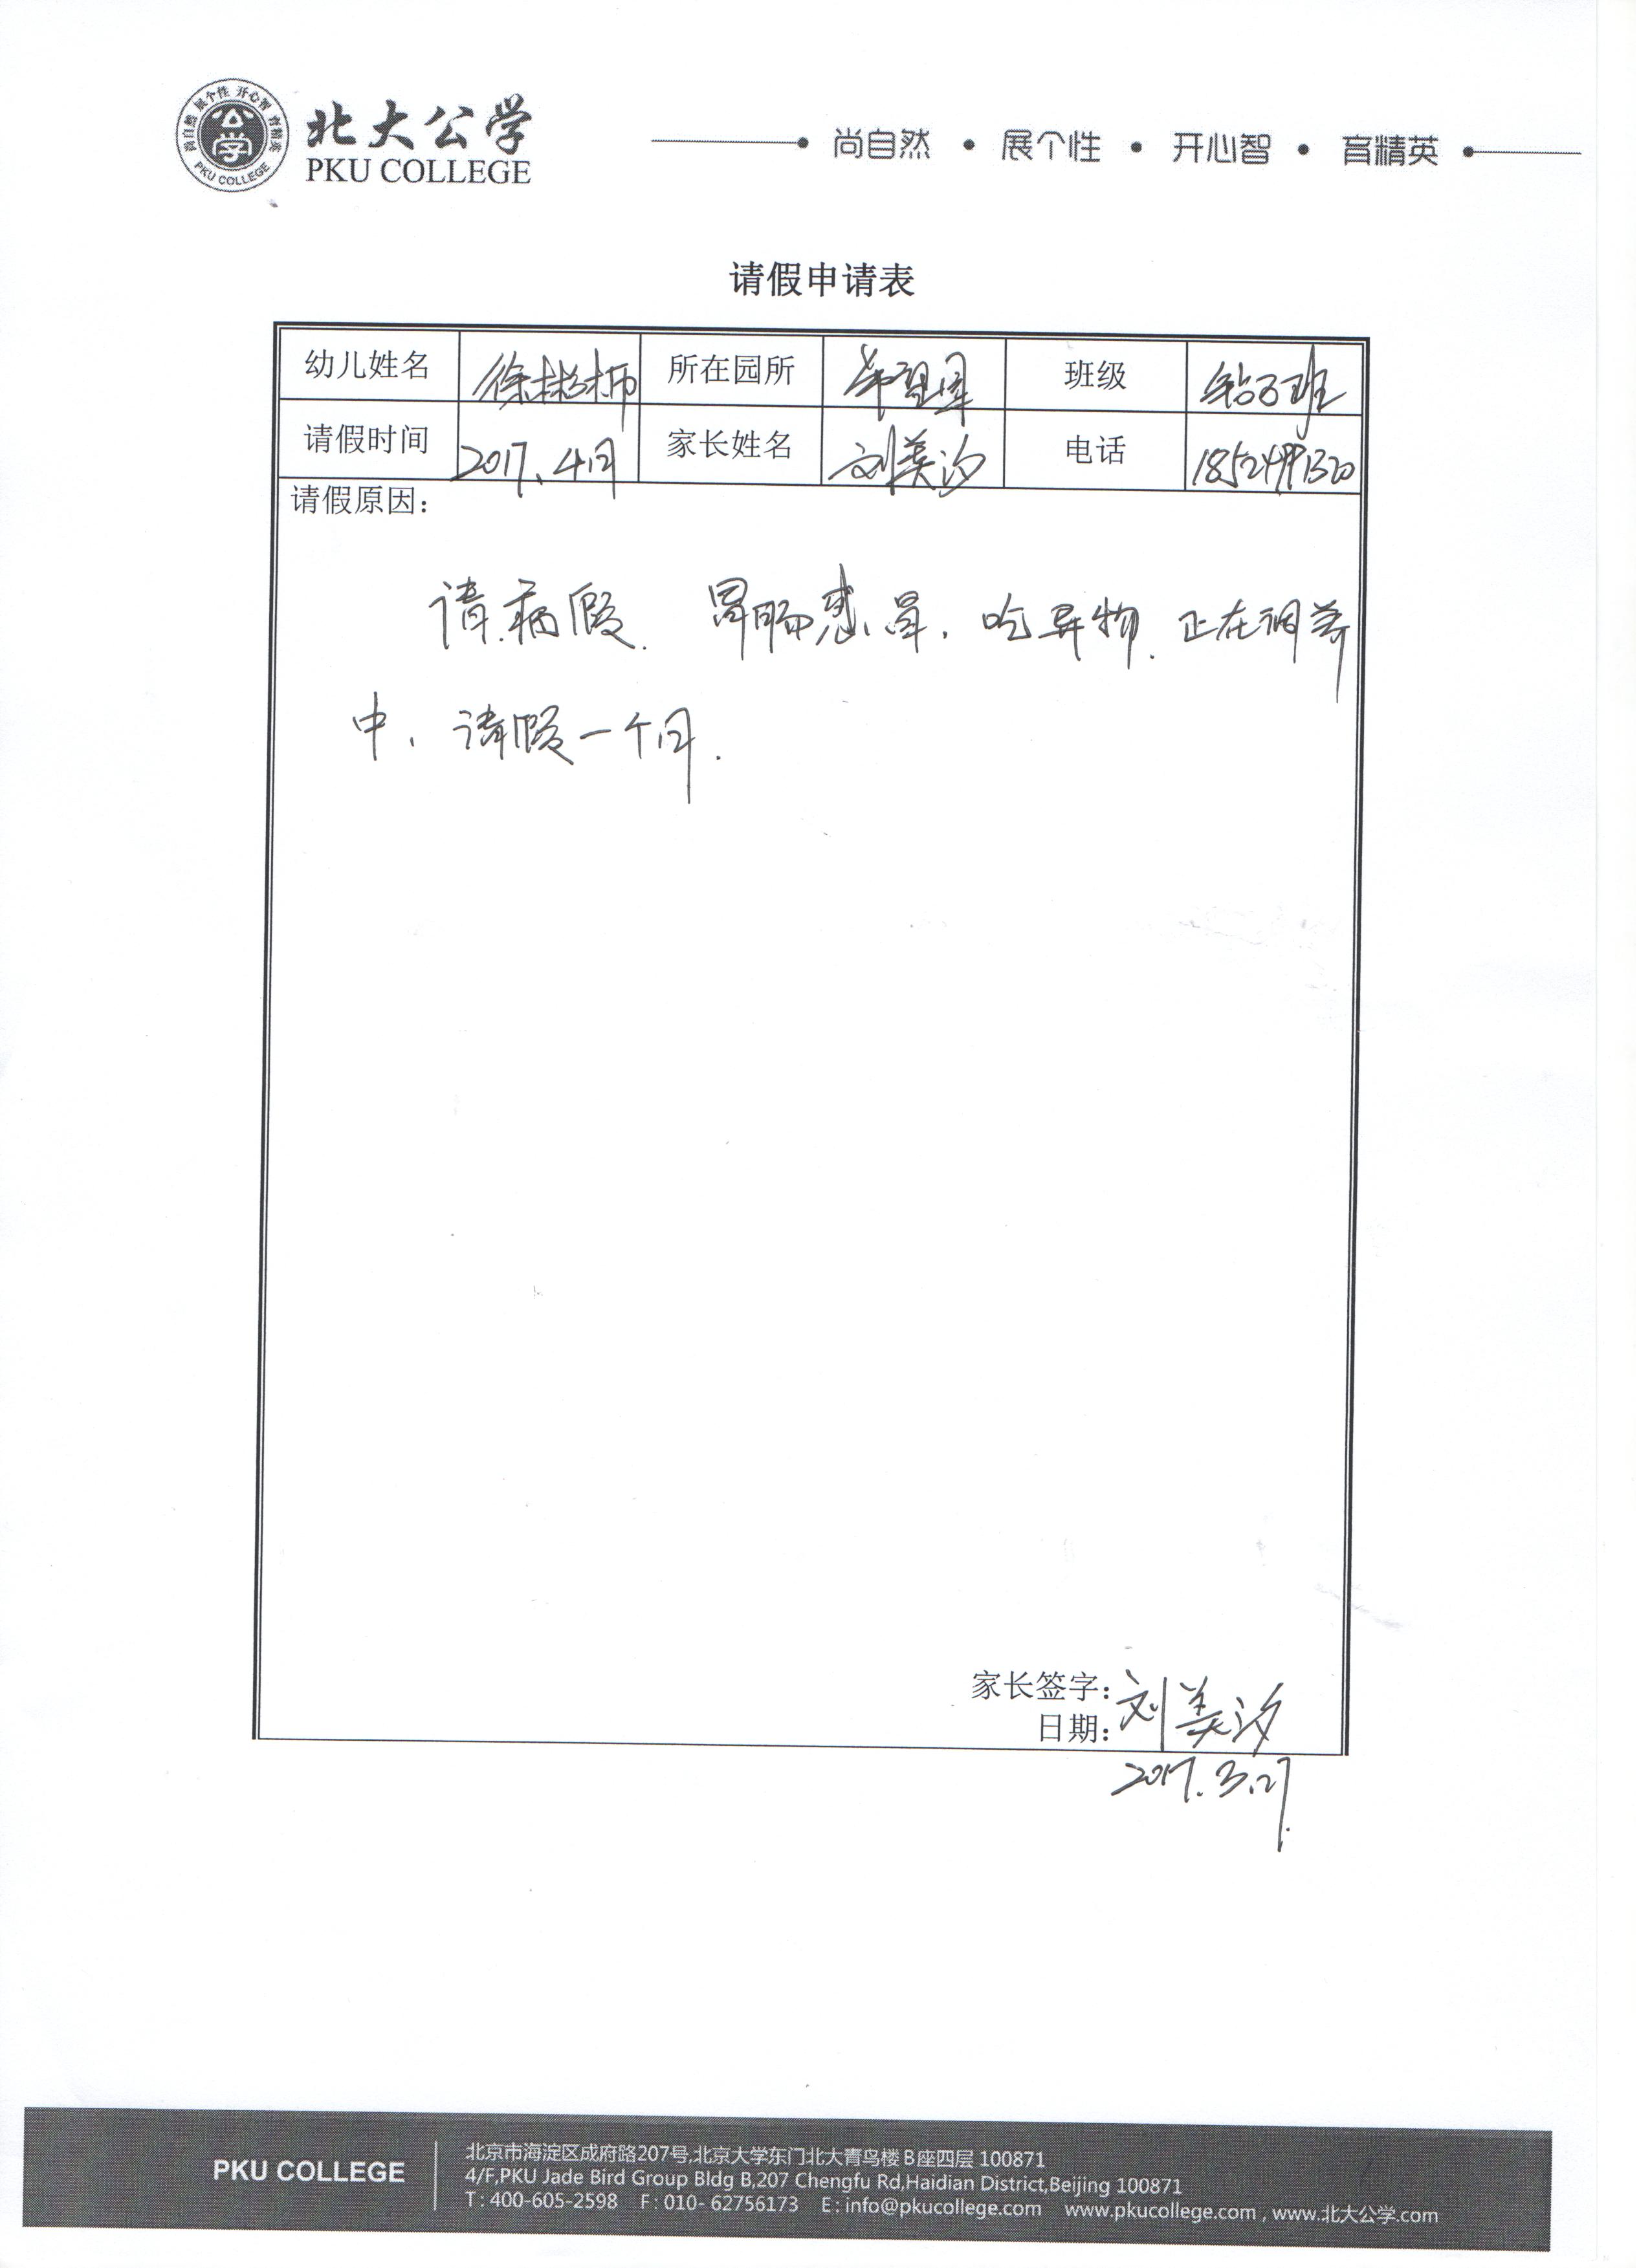 尚自然 展个性 开心智 育精英
公学
PKU COLLEGE
北大公学
PKU COLLEGE
尚自然 • 展个性 • 开心智 • 育精英
请假申请表
幼儿姓名 徐彬柿 所在园所 希望园 班级 钻石班
请假时间 2017、4月 家长姓名 刘美汐 电话
请假原因：
请病假. 胃肠感冒, 吃异物. 正在调养
中, 请假一个月.
家长签字: 刘美汐
日期:
2017.3.27.
PKU COLLEGE
北京市海淀区成府路207号,北京大学东门北大青鸟楼B座四层 100871
4/F,PKU Jade Bird Group Bldg B,207 Chengfu Rd,Haidian District,Beijing 100871
T : 400-605-2598 F : 010- 62756173 E : info@pkucollege.com www.pkucollege.com , www.北大公学.com